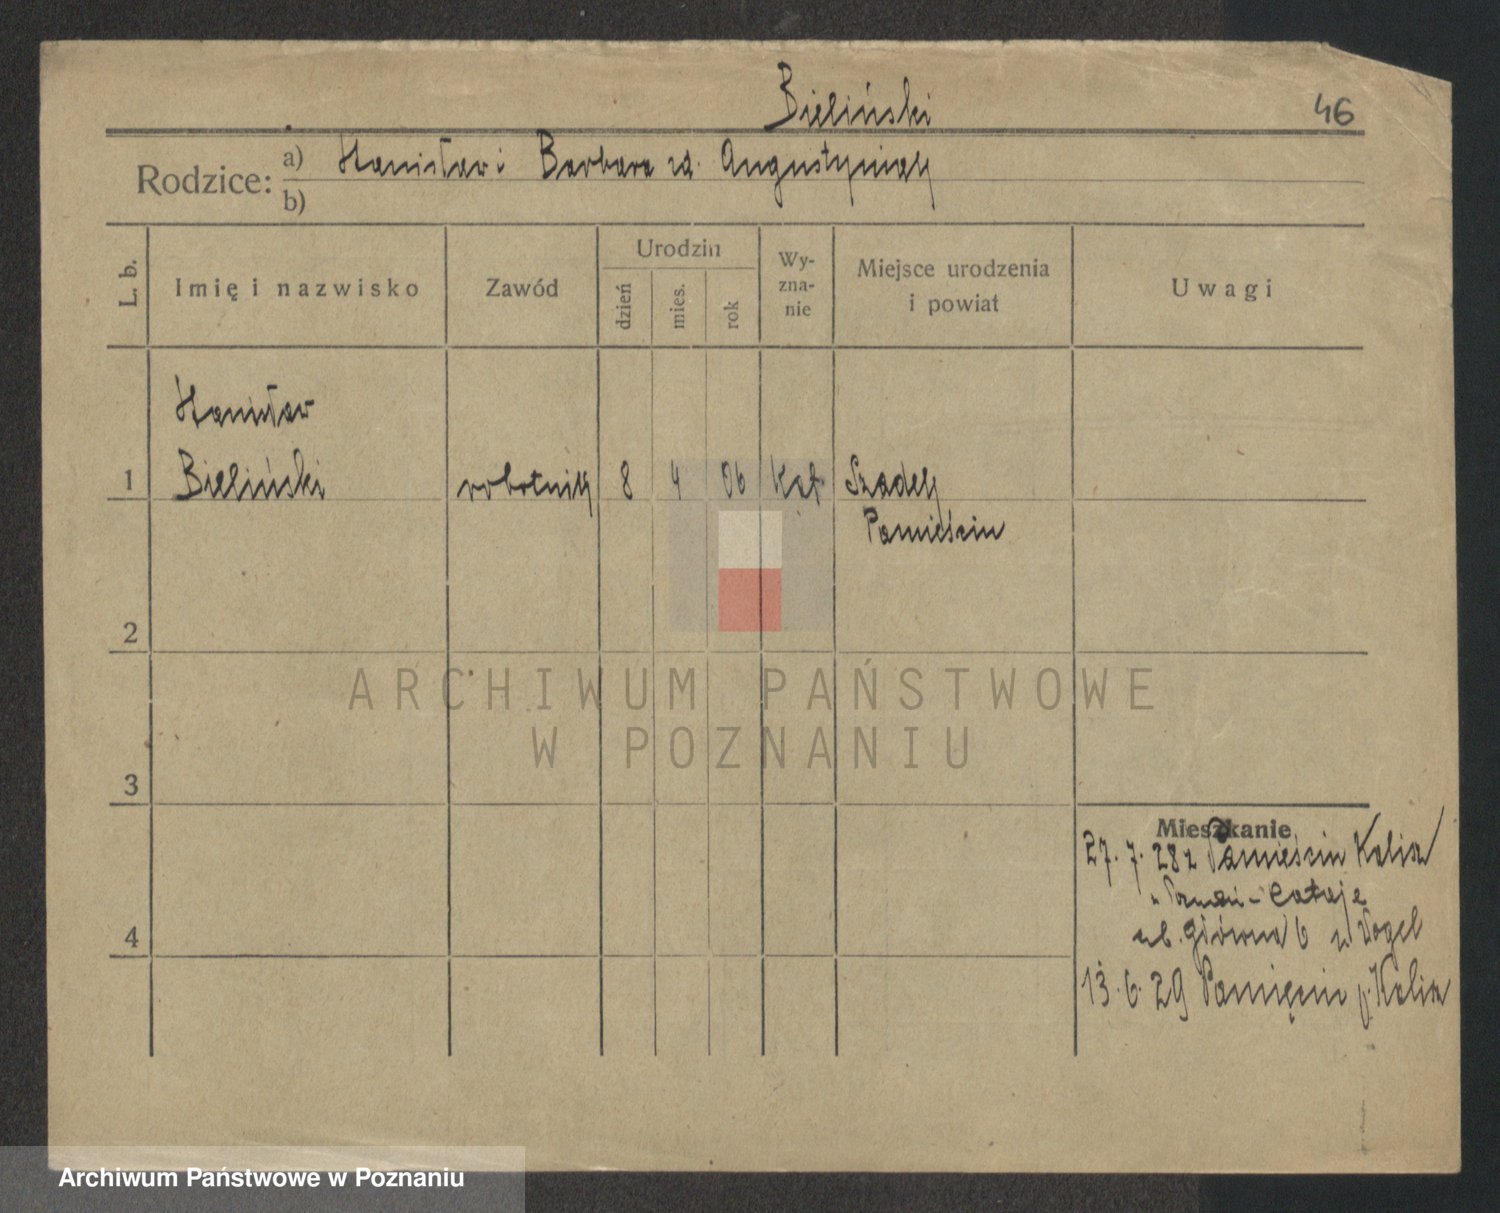 Bieliński
46
Rodzice: a) Stanisław i Barbara zd. Augustyniak
b)
L. b. Imię i nazwisko Zawód Urodzin dzień mies. rok Wyznanie Miejsce urodzenia i powiat Uwagi
Stanisław
1 Bieliński robotnik 8 4 06 Kat Szadek
Pamięcin
2
ARCHIWUM PAŃSTWOWE
W POZNANIU
3
Mieszkanie
27. 7. 28 z Pamięcin Kalisz
Poznań - Łataje
4 ul. Główna 6 u Vogel
13. 6. 29 Pamięcin p. Kalisz
Archiwum Państwowe w Poznaniu